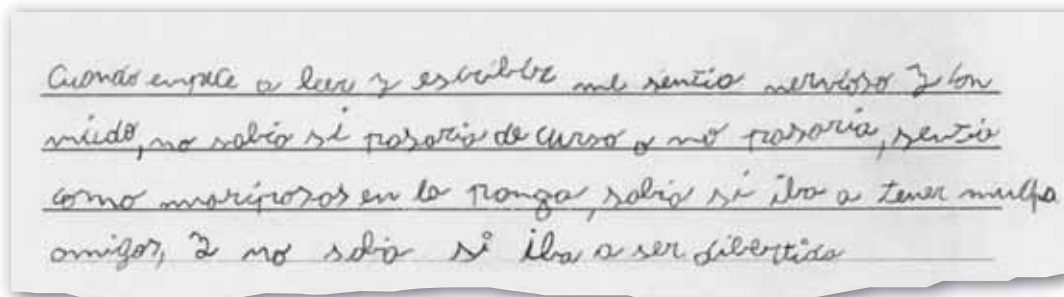 Cuando empece a leer y escribir me sentia nervioso y con
miedo, no sabia si pasaria de curso o no pasaria, sentia
como mariposas en la panga, sabia si iba a tener
amigos, y no sabia si iba a ser dibertido